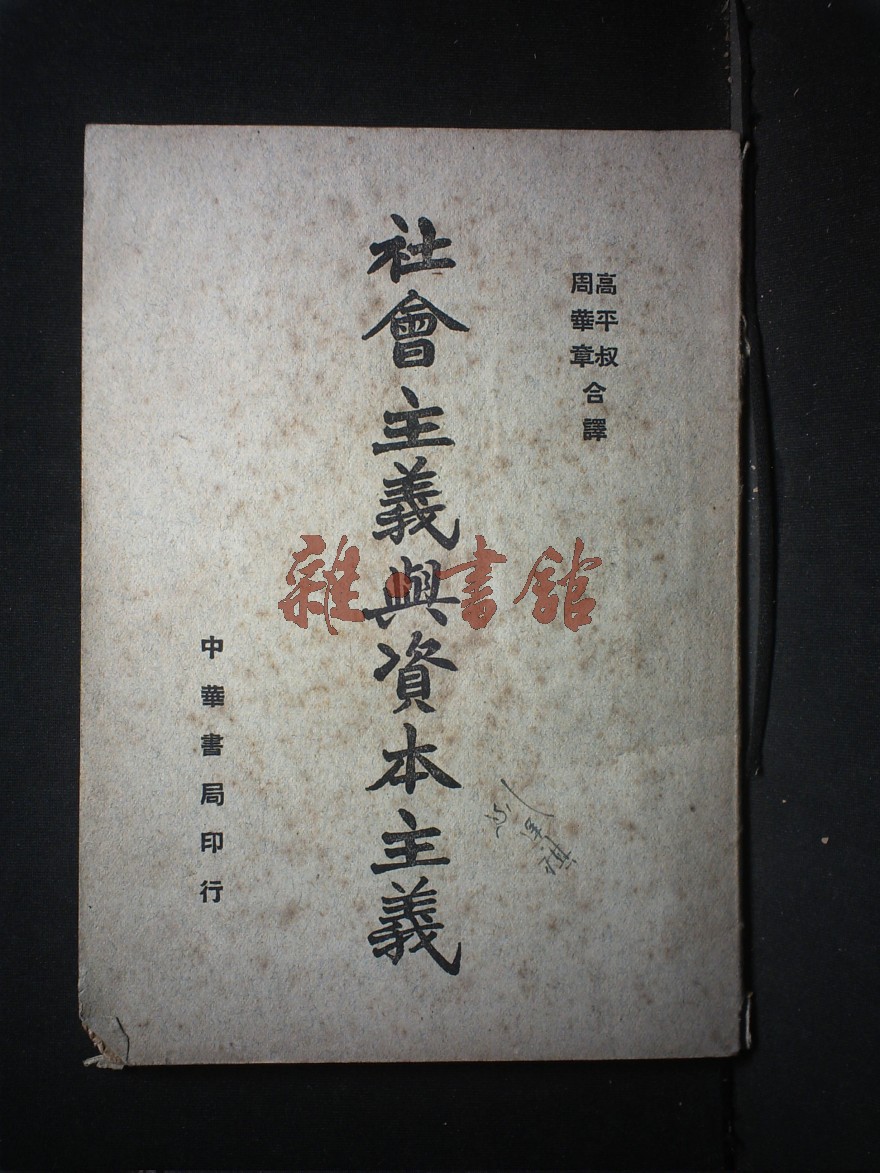 高平叔
周華章
合譯
社會主義與資本主義
中華書局印行
雜書館